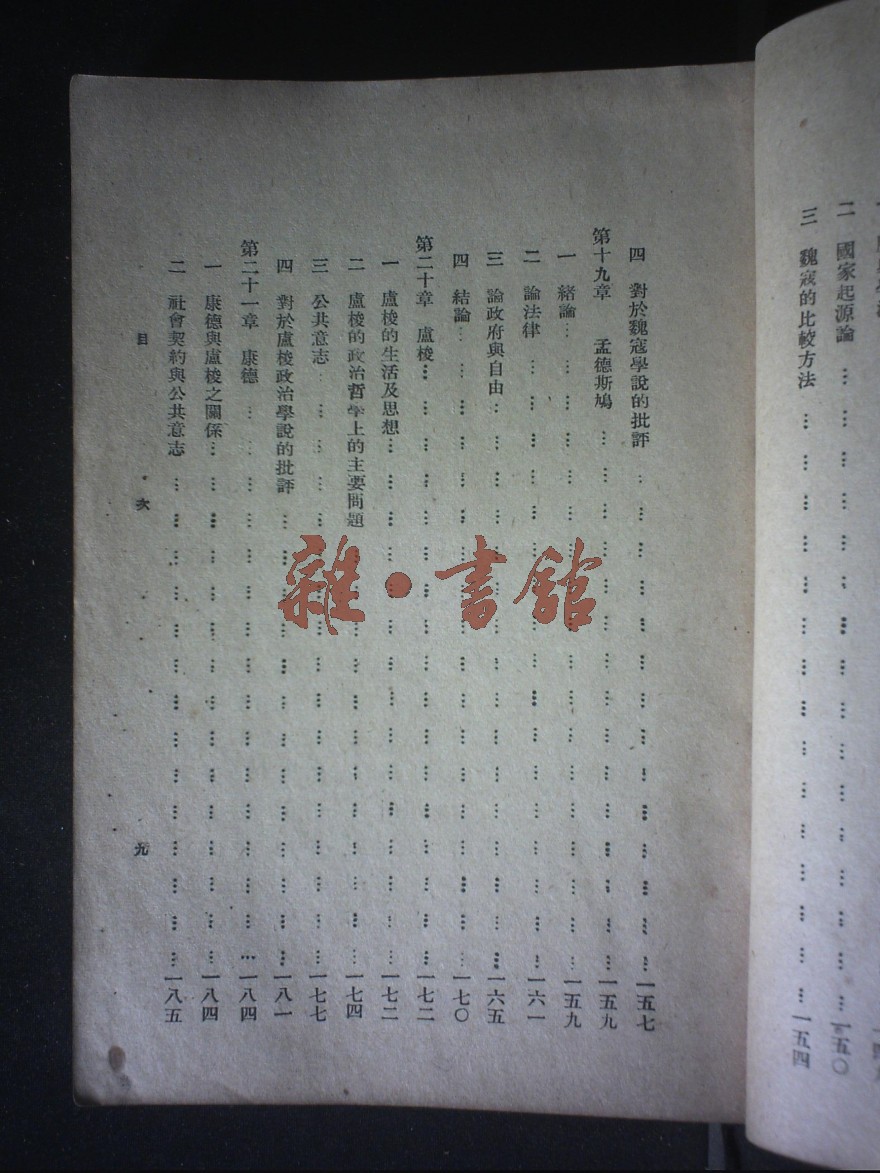 二　國家起源論………………一五〇
三　魏寇的比較方法………………一五四
四　對於魏寇學說的批評………………一五七
第十九章　孟德斯鳩………………一五九
一　緒論………………一五九
二　論法律………………一六一
三　論政府與自由………………一六五
四　結論………………一七〇
第二十章　盧梭………………一七二
一　盧梭的生活及思想………………一七二
二　盧梭的政治哲學上的主要問題………………一七四
三　公共意志………………一七七
四　對於盧梭政治學說的批評………………一八一
第二十一章　康德………………一八四
一　康德與盧梭之關係………………一八四
二　社會契約與公共意志………………一八五
目　次　九
雜·書館